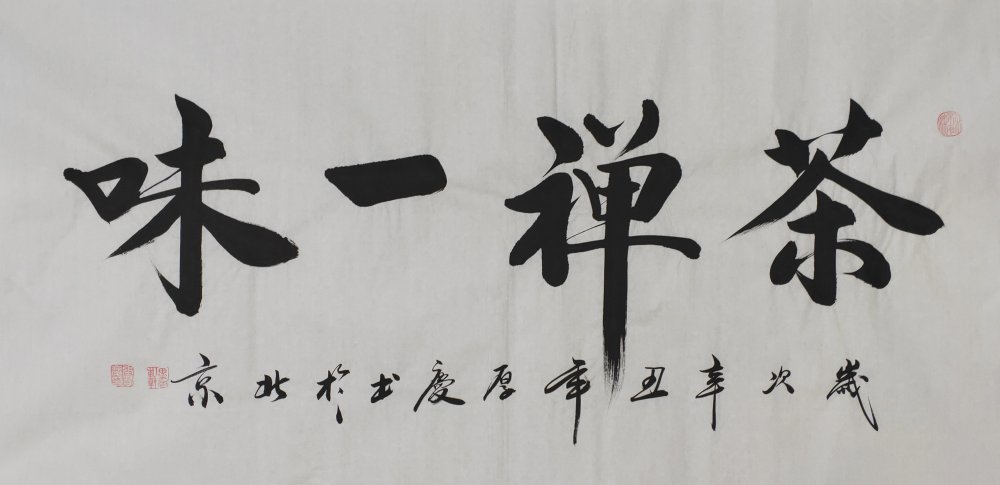 茶禅一味
歲次辛丑年厚慶书於北京